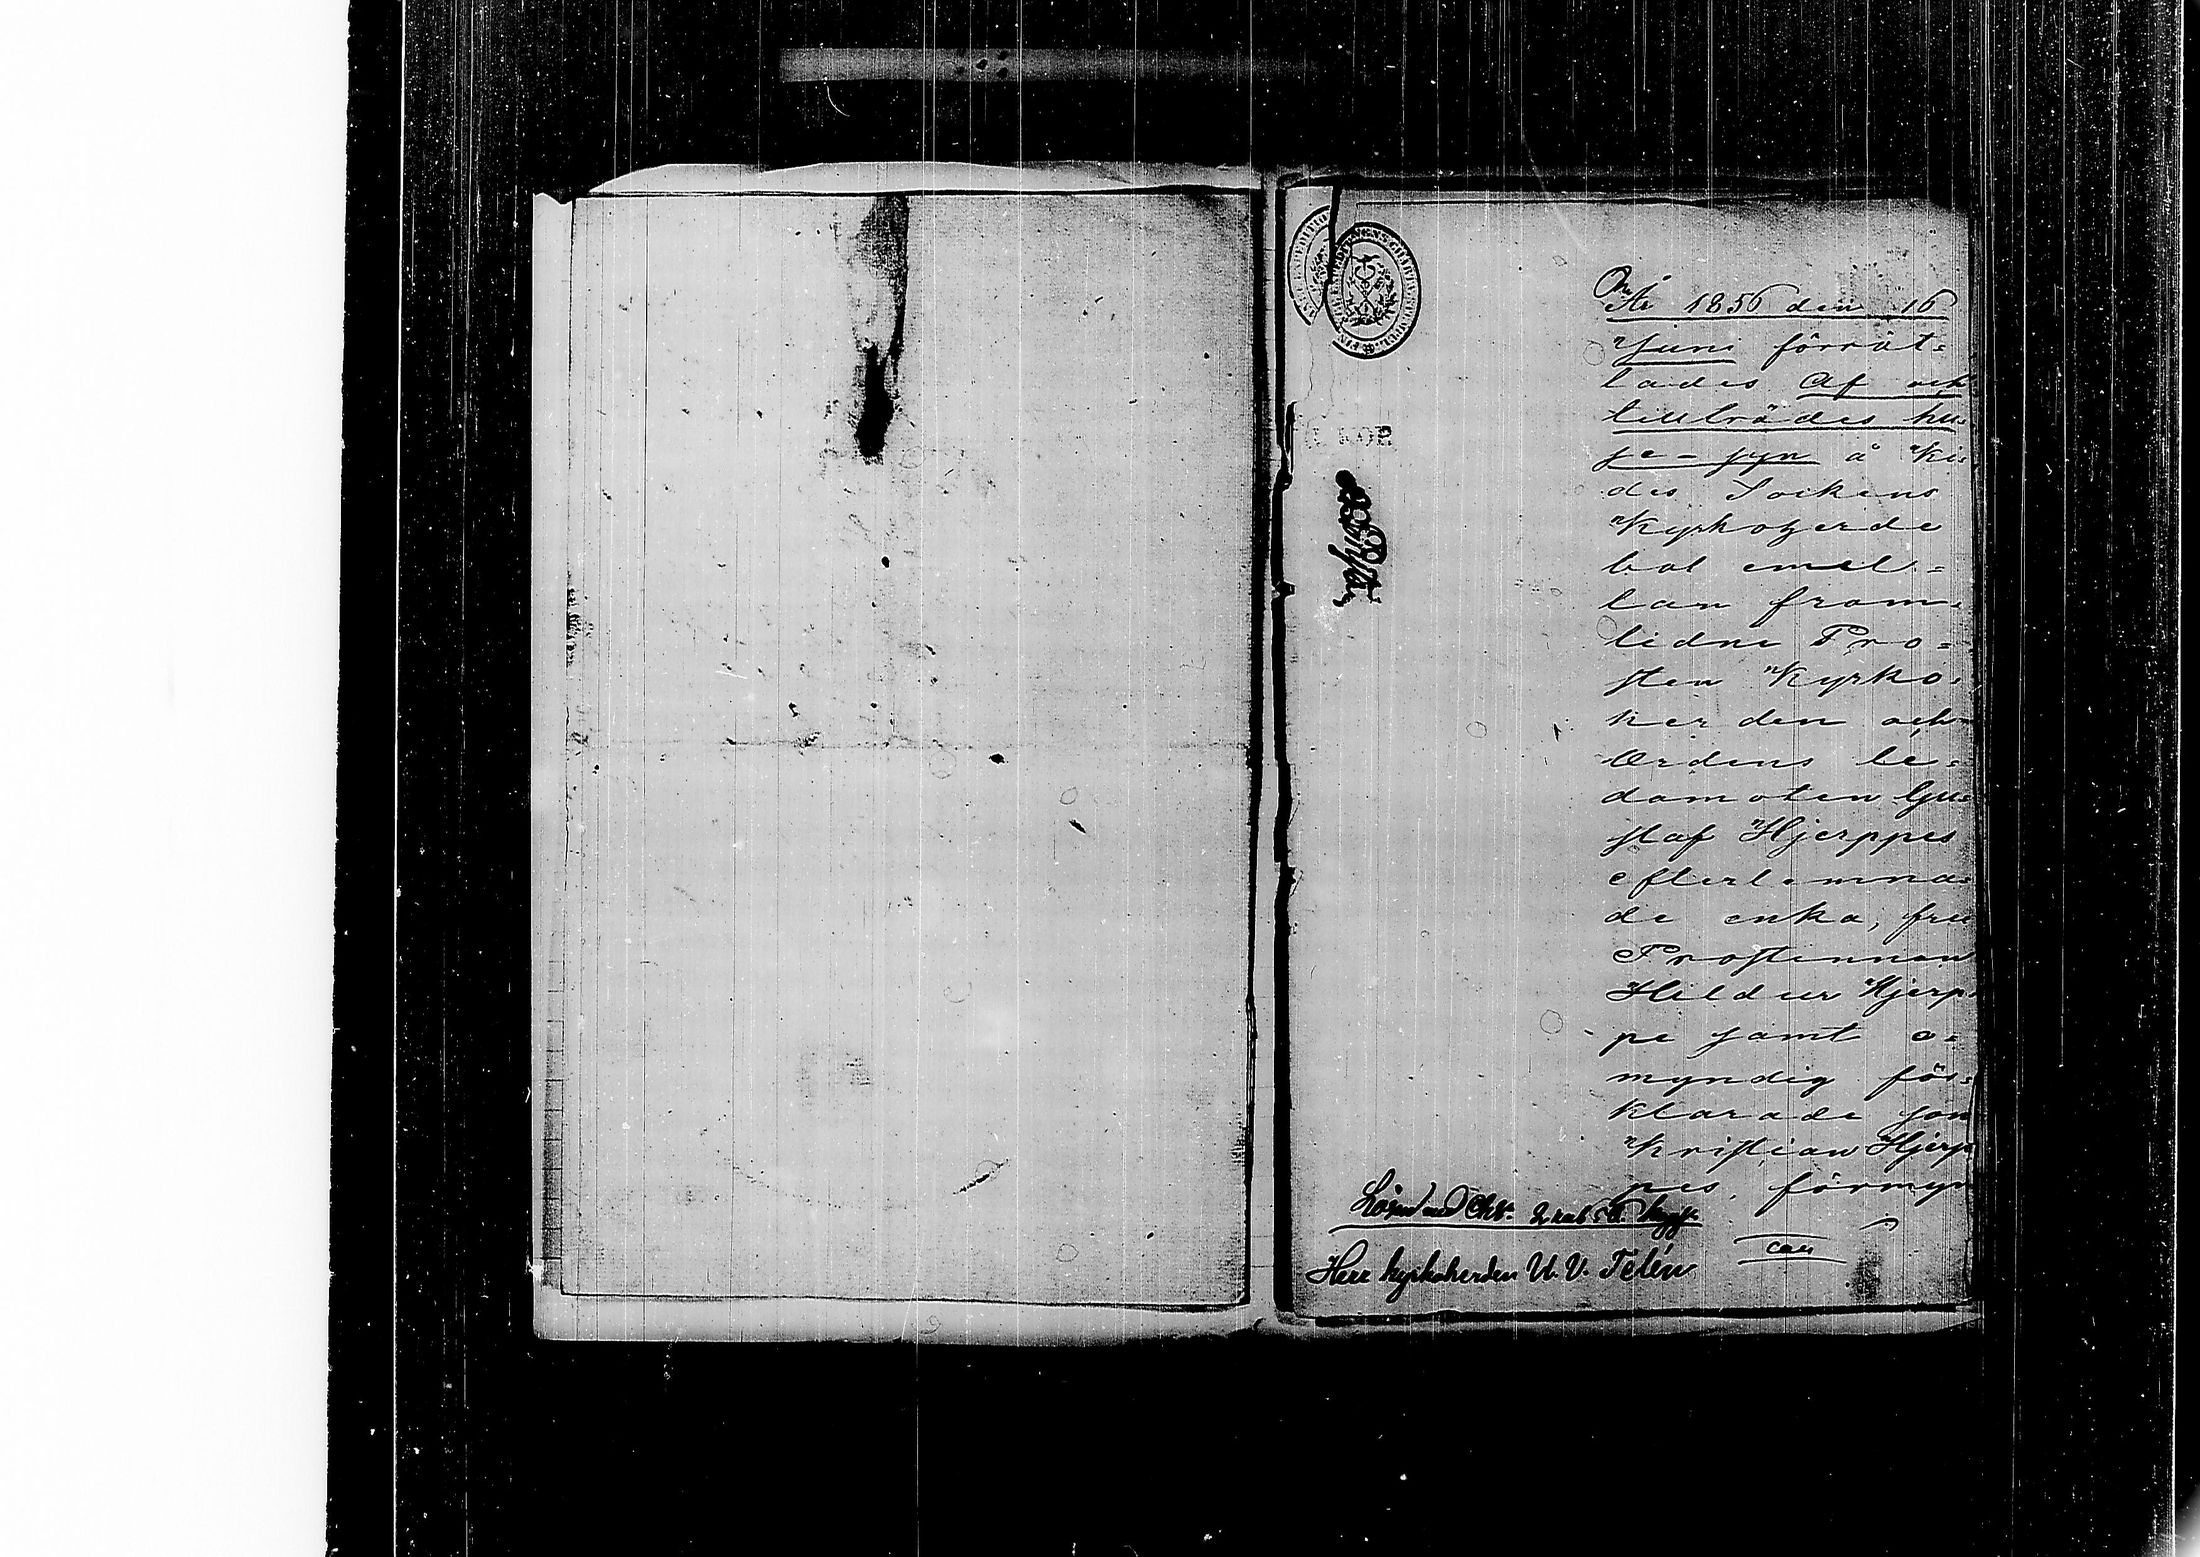 År 1856 den 16
Juni förrät=
tades Af och
tillträdes hu=
se-syn å Ki=
des Sockens
Kyrkoherde
bol emel=
lan fram=
lidne Pro=
sten Kyrko=
herden och
Ordens le=
damoten Gu=
staf Hjerppes
efterlemna=
de enka, fru
Prostinnan
Hildur Hjerp=
pe samt o=
myndig för=
klarade son
Kristian Hjerp
pes, förmyn
Lösen med Chts. 2 rub
Herr kyrkoherden U. V. Telén